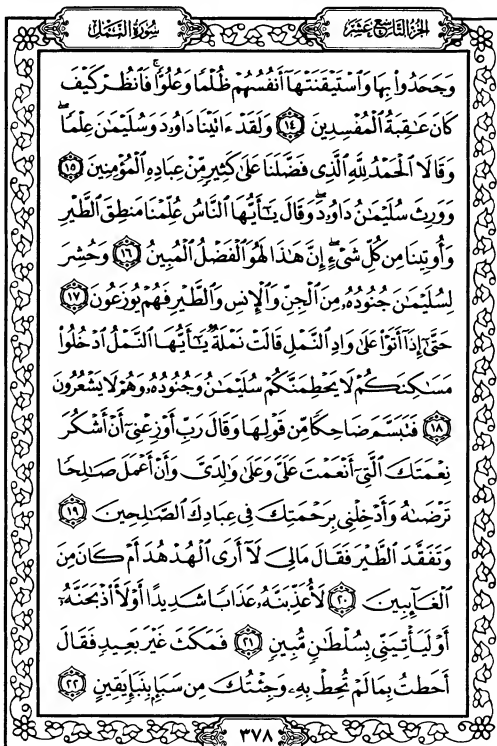 الجزء التاسع عشر
سورة النمل
وَجَحَدُوا۟ بِهَا وَٱسْتَيْقَنَتْهَآ أَنفُسُهُمْ ظُلْمًا وَعُلُوًّا ۚ فَٱنظُرْ كَيْفَ
كَانَ عَٰقِبَةُ ٱلْمُفْسِدِينَ ١٤ وَلَقَدْ ءَاتَيْنَا دَاوُۥدَ وَسُلَيْمَٰنَ عِلْمًا ۖ
وَقَالَا ٱلْحَمْدُ لِلَّهِ ٱلَّذِى فَضَّلَنَا عَلَىٰ كَثِيرٍ مِّنْ عِبَادِهِ ٱلْمُؤْمِنِينَ ١٥
وَوَرِثَ سُلَيْمَٰنُ دَاوُۥدَ ۖ وَقَالَ يَٰٓأَيُّهَا ٱلنَّاسُ عُلِّمْنَا مَنطِقَ ٱلطَّيْرِ
وَأُوتِينَا مِن كُلِّ شَىْءٍ ۖ إِنَّ هَٰذَا لَهُوَ ٱلْفَضْلُ ٱلْمُبِينُ ١٦ وَحُشِرَ
لِسُلَيْمَٰنَ جُنُودُهُۥ مِنَ ٱلْجِنِّ وَٱلْإِنسِ وَٱلطَّيْرِ فَهُمْ يُوزَعُونَ ١٧
حَتَّىٰٓ إِذَآ أَتَوْا۟ عَلَىٰ وَادِ ٱلنَّمْلِ قَالَتْ نَمْلَةٌ يَٰٓأَيُّهَا ٱلنَّمْلُ ٱدْخُلُوا۟
مَسَٰكِنَكُمْ لَا يَحْطِمَنَّكُمْ سُلَيْمَٰنُ وَجُنُودُهُۥ وَهُمْ لَا يَشْعُرُونَ
١٨ فَتَبَسَّمَ ضَاحِكًا مِّن قَوْلِهَا وَقَالَ رَبِّ أَوْزِعْنِىٓ أَنْ أَشْكُرَ
نِعْمَتَكَ ٱلَّتِىٓ أَنْعَمْتَ عَلَىَّ وَعَلَىٰ وَٰلِدَىَّ وَأَنْ أَعْمَلَ صَٰلِحًا
تَرْضَىٰهُ وَأَدْخِلْنِى بِرَحْمَتِكَ فِى عِبَادِكَ ٱلصَّٰلِحِينَ ١٩
وَتَفَقَّدَ ٱلطَّيْرَ فَقَالَ مَالِىَ لَآ أَرَى ٱلْهُدْهُدَ أَمْ كَانَ مِنَ
ٱلْغَآئِبِينَ ٢٠ لَأُعَذِّبَنَّهُۥ عَذَابًا شَدِيدًا أَوْ لَأَا۟ذْبَحَنَّهُۥٓ
أَوْ لَيَأْتِيَنِّى بِسُلْطَٰنٍ مُّبِينٍ ٢١ فَمَكَثَ غَيْرَ بَعِيدٍ فَقَالَ
أَحَطتُ بِمَا لَمْ تُحِطْ بِهِۦ وَجِئْتُكَ مِن سَبَإٍۭ بِنَبَإٍ يَقِينٍ ٢٢
٣٧٨